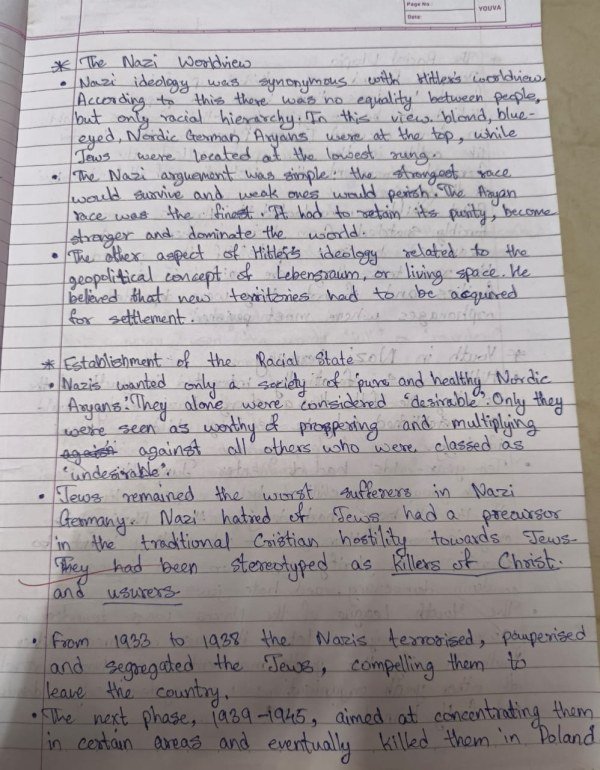 Page No.
Date
YOUVA
* The Nazi Worldview
• Nazi ideology was synonymous with Hitler's worldview.
According to this there was no equality between people,
but only racial hierarchy. In this view blond, blue-
eyed, Nordic German Aryans were at the top, while
Jews were located at the lowest rung.
• The Nazi arguement was simple: the strongest race
would survive and weak ones would perish. The Aryan
race was the finest. It had to retain its purity, become
stronger and dominate the world.
• The other aspect of Hitler's ideology related to the
geopolitical concept of Lebensraum, or living space. He
believed that new territories had to be acquired
for settlement.
* Establishment of the Racial State
• Nazis wanted only a society of 'pure and healthy Nordic
Aryans'. They alone were considered 'desirable'. Only they
were seen as worthy of prospering and multiplying
against all others who were classed as
'undesirable'.
• Jews remained the worst sufferers in Nazi
Germany. Nazi hatred of Jews had a precursor
in the traditional Cristian hostility towards Jews.
They had been stereotyped as killers of Christ.
and usurers.
• From 1933 to 1938 the Nazis terrorised, pauperised
and segregated the Jews, compelling them to
leave the country.
• The next phase, 1939-1945, aimed at concentrating them
in certain areas and eventually killed them in Poland